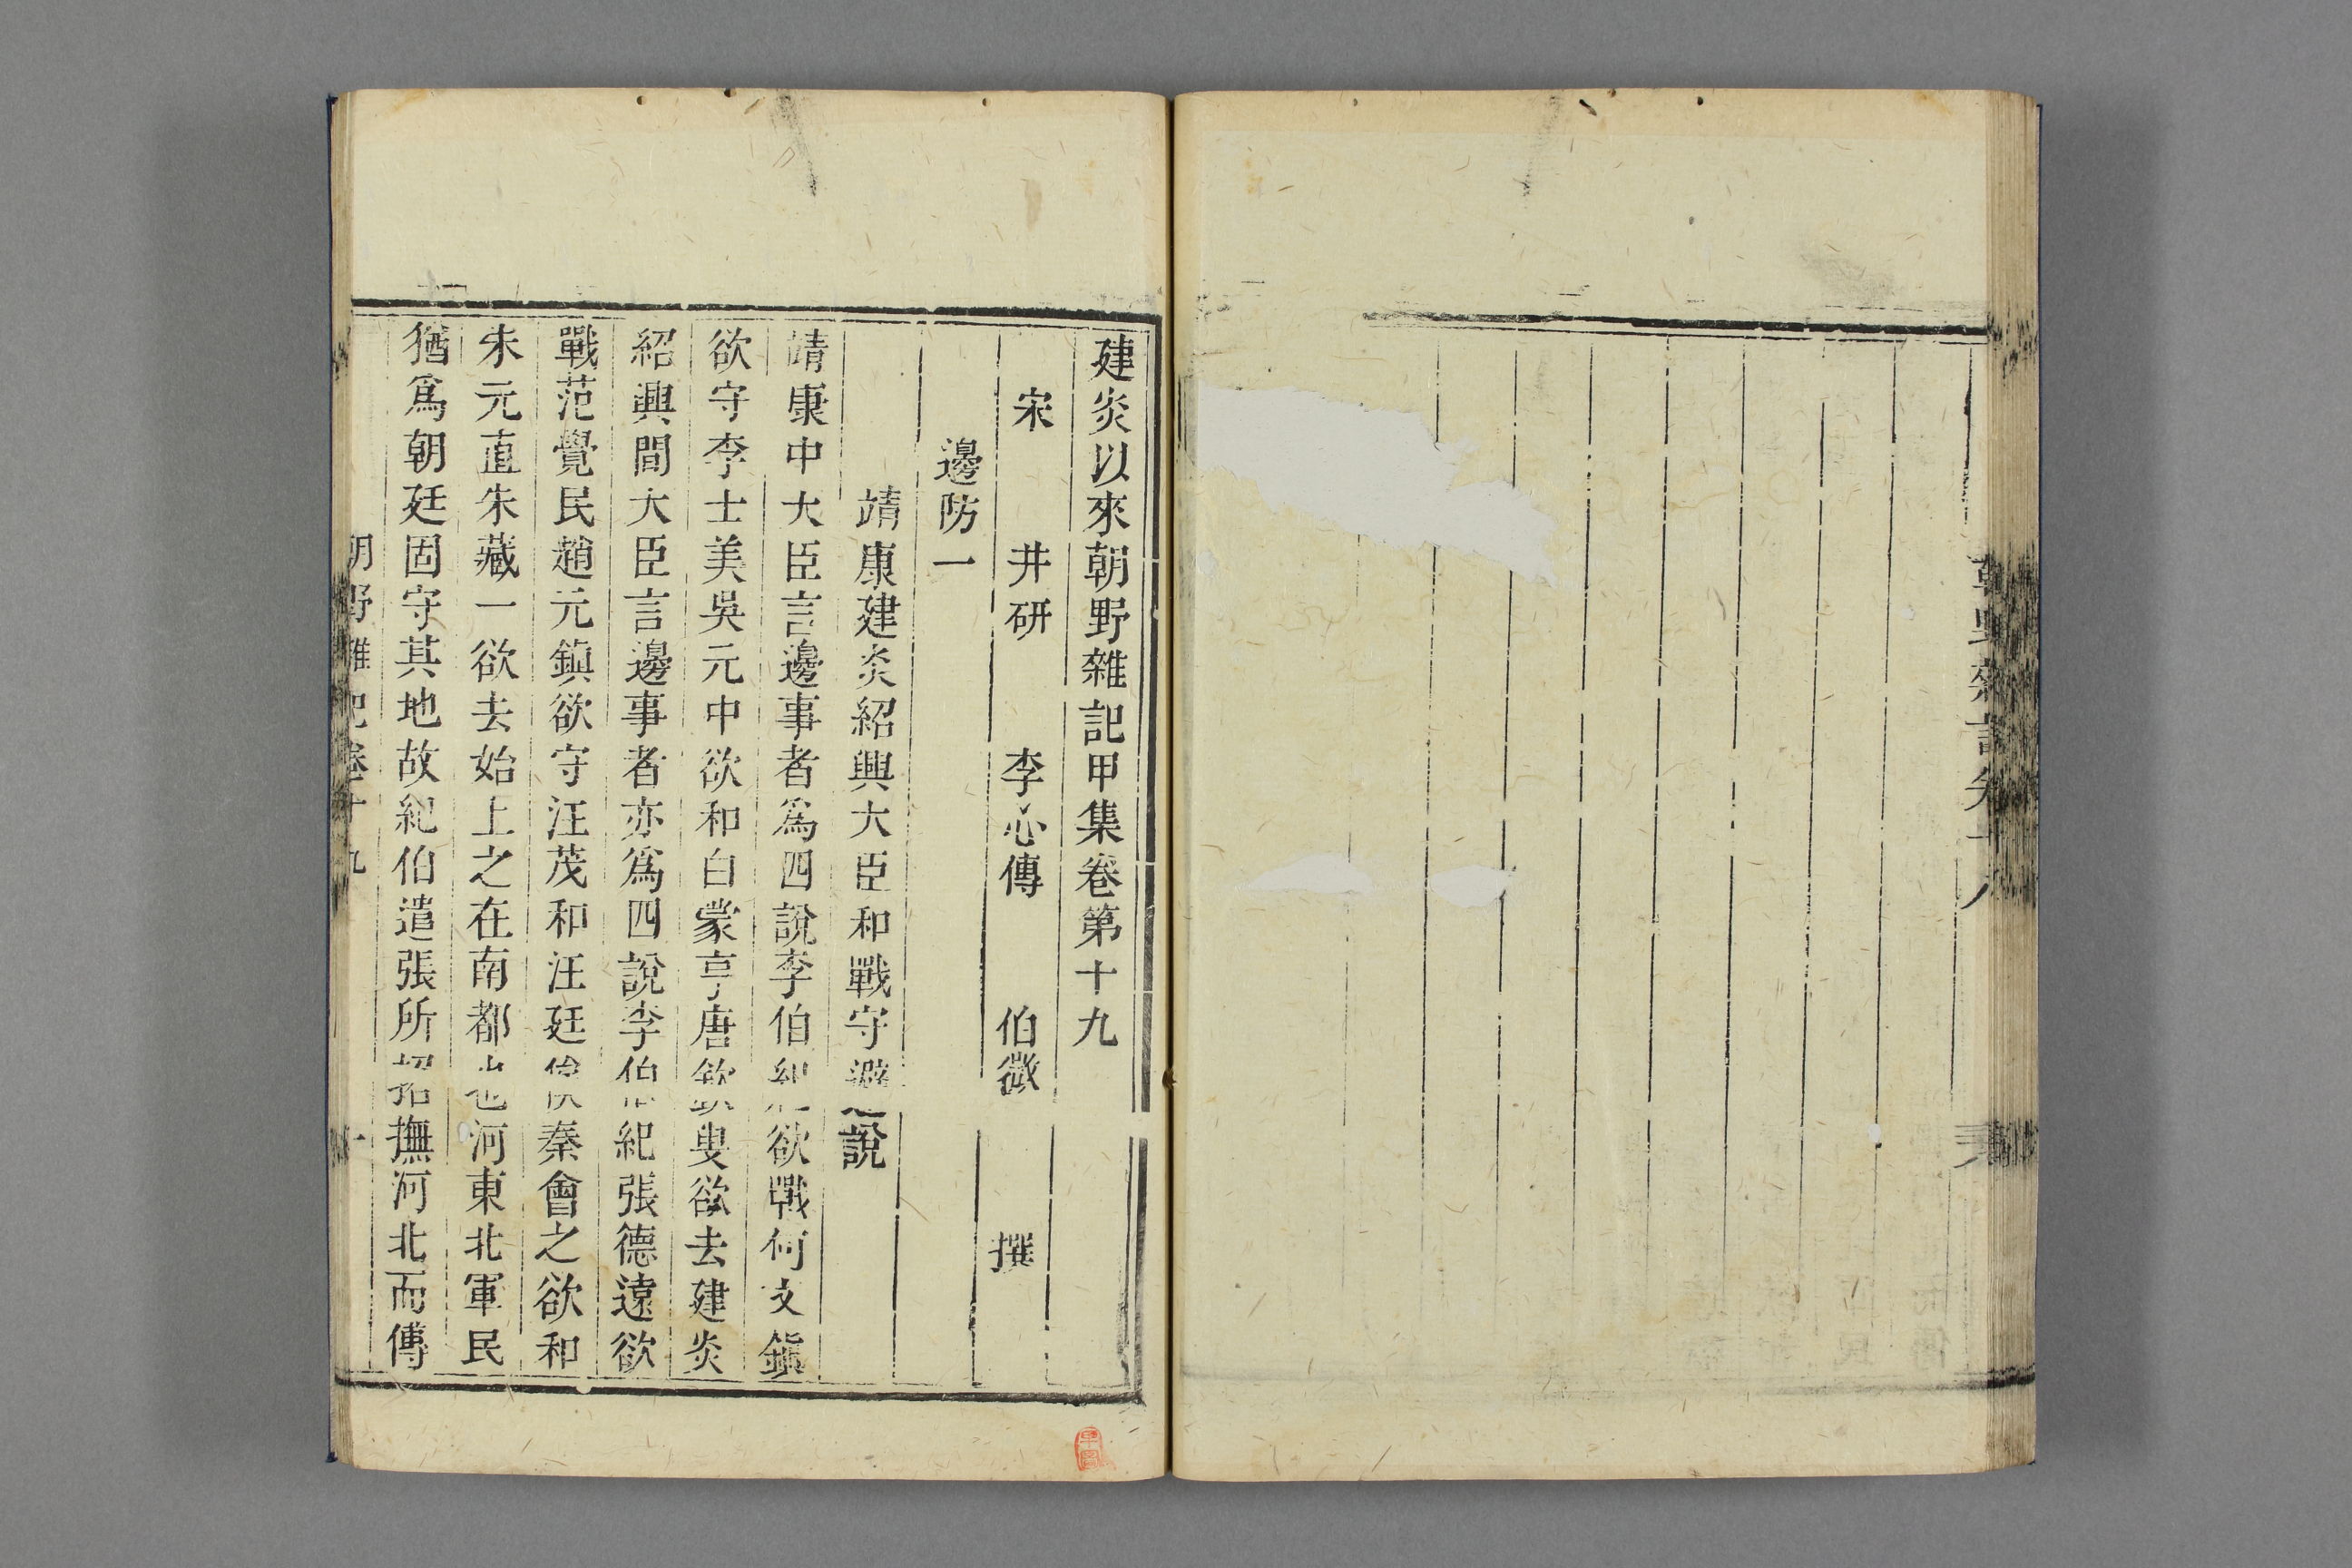 建炎以來朝野雜記甲集卷第十九
宋 井研 李心傳 伯微 撰
邊防一
靖康建炎紹興大臣和戰守避之說
靖康中大臣言邊事者爲四說李伯紀欲戰何文鎭
欲守李士美吳元中欲和白蒙亨唐欽叟欲去建炎
紹興間大臣言邊事者亦爲四說李伯紀張德遠欲
戰范覺民趙元鎮欲守汪茂和汪廷俊秦會之欲和
朱元直朱藏一欲去始上之在南都也河東北軍民
猶爲朝廷固守其地故紀伯遣張所招撫河北而傅
朝野雜記卷十九
一